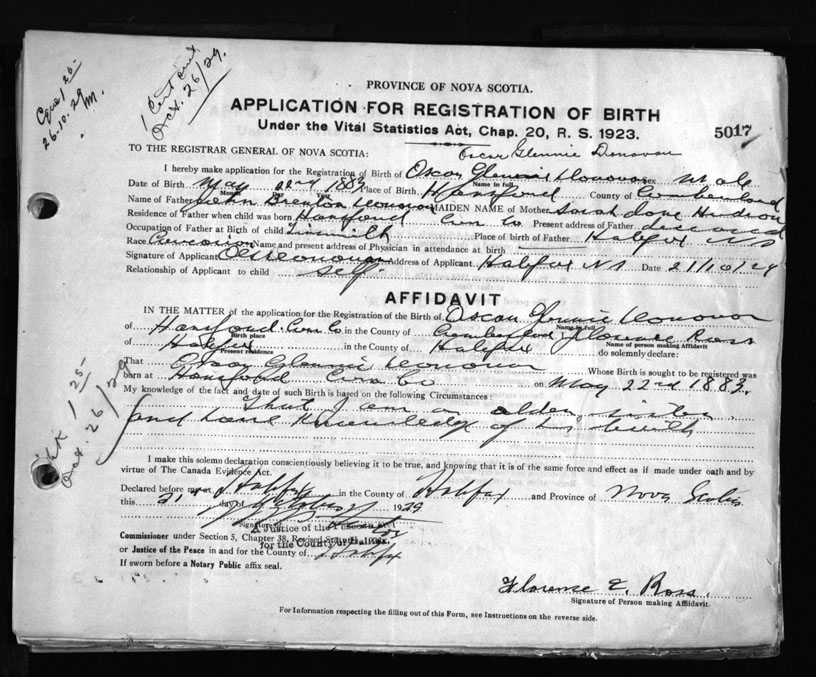 PROVINCE OF NOVA SCOTIA.
APPLICATION FOR REGISTRATION OF BIRTH
Under the Vital Statistics Act, Chap. 20, R. S. 1923.
5017
1 Cert
Oct. 26/29.
26.10.29
TO THE REGISTRAR GENERAL OF NOVA SCOTIA:
Oscar Glennie Donovan
I hereby make application for the Registration of Birth of Oscar Glennie Donovan Sex Male
Name in full
Date of Birth May 22nd 1883 Place of Birth Hansford County of Cumberland
Month Day
Name of Father John Brenton Donovan MAIDEN NAME of Mother Sarah Jane Hudson
Residence of Father when child was born Hansford Cum Co Present address of Father deceased
Occupation of Father at Birth of child Tinsmith Place of birth of Father Halifax NS
Race Name and present address of Physician in attendance at birth
Signature of Applicant O G Donovan Address of Applicant Halifax NS Date 21/10/29
Relationship of Applicant to child self.
AFFIDAVIT
IN THE MATTER of the application for the Registration of the Birth of Oscar Glennie Donovan
Name in full
of Hansford Cum Co in the County of Cumberland Florence Ross
Birth place Name of person making Affidavit
of Halifax in the County of Halifax do solemnly declare:
Present residence
That Oscar Glennie Donovan Whose Birth is sought to be registered was
born at Hansford Cum Co on May 22nd 1883.
My knowledge of the fact and date of such Birth is based on the following Circumstances:
That I am a older sister
and have knowledge of his birth
1 25
Oct. 26/29
I make this solemn declaration conscientiously believing it to be true, and knowing that it is of the same force and effect as if made under oath and by
virtue of The Canada Evidence Act.
Declared before me at Halifax in the County of Halifax and Province of Nova Scotia
this 21st day of 1929
Signature
A Justice of the
for the County of
Commissioner under Section 5, Chapter 38, Revised Statutes,
or Justice of the Peace in and for the County of Halifax
If sworn before a Notary Public affix seal.
Florence E. Ross.
Signature of Person making Affidavit.
For Information respecting the filling out of this Form, see Instructions on the reverse side.